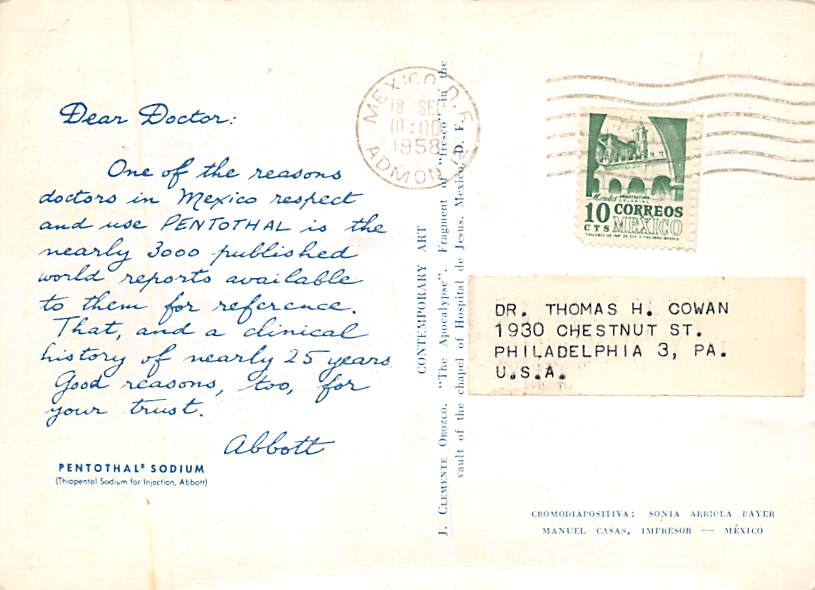 Dear Doctor:
One of the reasons
doctors in Mexico respect
and use PENTOTHAL is the
nearly 3000 published
world reports available
to them for reference.
That, and a clinical
history of nearly 25 years.
Good reasons, too, for
your trust.
Abbott
PENTOTHAL® SODIUM
(Thiopental Sodium for Injection, Abbott)
CONTEMPORARY ART
J. CLEMENTE OROZCO. "The Apocalypse". Fragment of "fresco" in the
vault of the chapel of Hospital de Jesus. Mexico, D. F.
MEXICO D.F.
18 SEP
10:00
1958
ADMON
Morelos
10 CORREOS
CTS MEXICO
DR. THOMAS H. COWAN
1930 CHESTNUT ST.
PHILADELPHIA 3, PA.
U.S.A.
CROMODIAPOSITIVA: SONJA ARRIOLA BAYER
MANUEL CASAS, IMPRESOR — MÉXICO